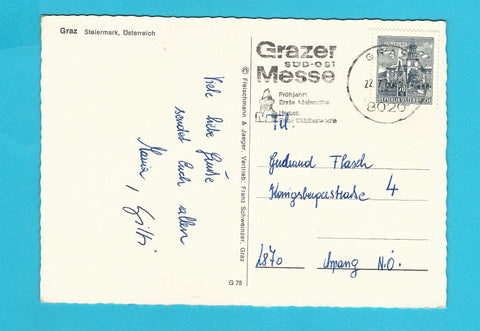 Graz Steiermark, Österreich
Viele liebe Grüße
sendet Euch allen
Maria, Gitti
© Fleischmann & Jaeger, Vertrieb: Franz Schweinzer, Graz
G 75
Grazer
SÜD-OST
Messe
Frühjahr:
Erste Maiwoche
Herbst:
Oktoberwoche
GRAZ
22.7.
8020
Fa.
Gertraud Flasch
Königsbergerstraße 4
2870 Aspang N.Ö.